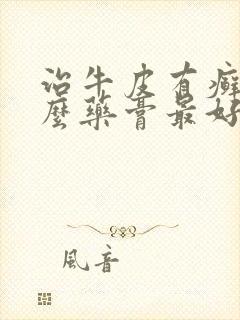 治牛皮有癣
麽藥膏最好
風音